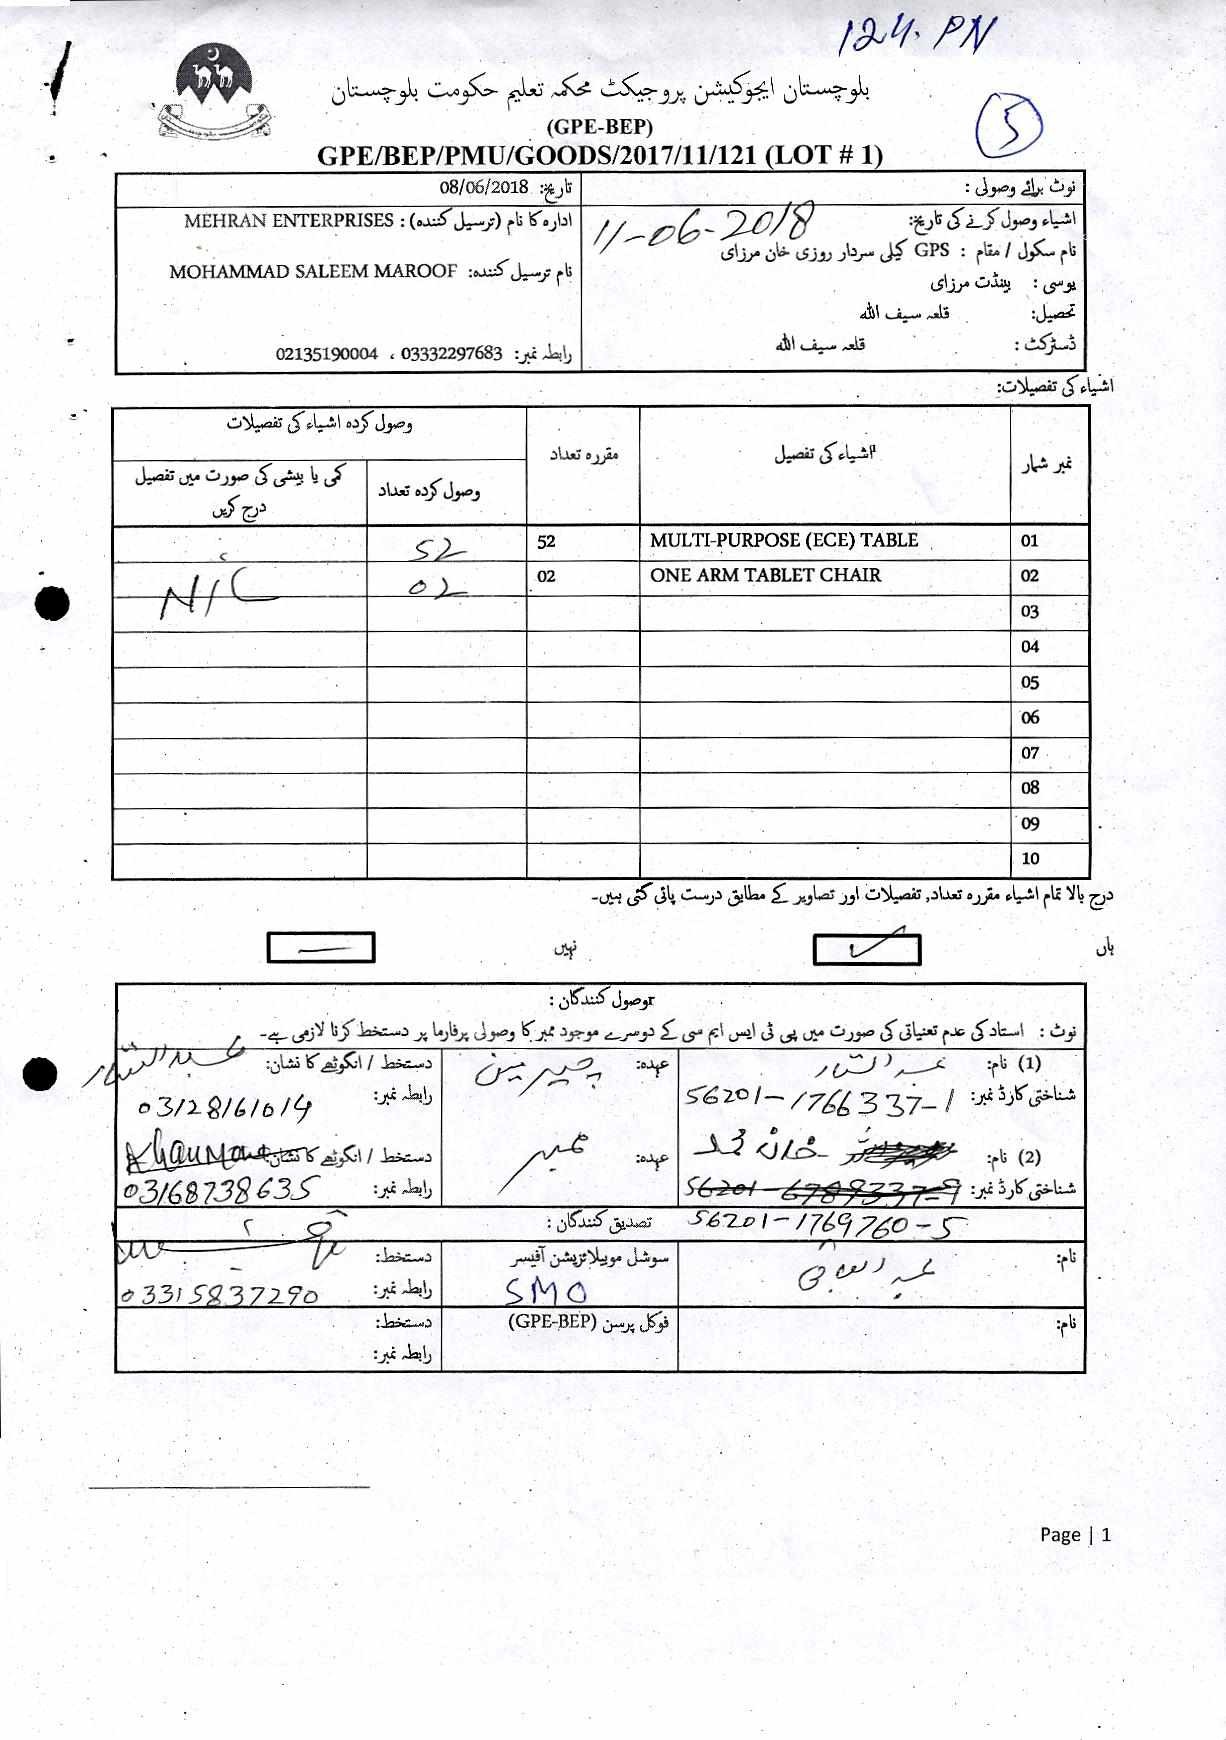 124. PN
بلوچستان ایجوکیشن پروجیکٹ محکمہ تعلیم حکومت بلوچستان
(GPE-BEP)
5
GPE/BEP/PMU/GOODS/2017/11/121 (LOT # 1)
نوٹ برائے وصولی :
تاریخ: 08/06/2018
اشیاء وصول کرنے کی تاریخ: 11-06-2018
ادارہ کا نام (ترسیل کنندہ) : MEHRAN ENTERPRISES
نام سکول / مقام : GPS کیلی سردار روزی خان مرزای
نام ترسیل کنندہ: MOHAMMAD SALEEM MAROOF
یوسی : بینڈت مرزای
تحصیل: قلعہ سیف اللہ
ڈسٹرکٹ : قلعہ سیف اللہ
رابطہ نمبر: 03332297683 ، 02135190004
اشیاء کی تفصیلات:
نمبر شمار
اشیاء کی تفصیل
مقررہ تعداد
وصول کردہ اشیاء کی تفصیلات
وصول کردہ تعداد
کمی یا بیشی کی صورت میں تفصیل درج کریں
01 MULTI-PURPOSE (ECE) TABLE 52 52
02 ONE ARM TABLET CHAIR 02 02
03
04
05
06
07
08
09
10
درج بالا تمام اشیاء مقررہ تعداد, تفصیلات اور تصاویر کے مطابق درست پائی گئی ہیں۔
ہاں ✓ نہیں —
وصول کنندگان :
نوٹ : استاد کی عدم تعنیاتی کی صورت میں پی ٹی ایس ایم سی کے دوسرے موجود ممبر کا وصولی پرفارما پر دستخط کرنا لازمی ہے۔
(1) نام: عبدالستار
عہدہ: چیرمین
دستخط / انگوٹھے کا نشان: عبدالستار
شناختی کارڈ نمبر: 56201-1766337-1
رابطہ نمبر: 03128161014
(2) نام: خان محمد
عہدہ: ممبر
دستخط / انگوٹھے کا نشان:
شناختی کارڈ نمبر: 56201-6789337-9
رابطہ نمبر: 03168738635
56201-1769760-5
تصدیق کنندگان :
نام:
سوشل موبیلائزیشن آفیسر
SMO
دستخط:
رابطہ نمبر: 03315837290
نام:
فوکل پرسن (GPE-BEP)
دستخط:
رابطہ نمبر:
Page | 1